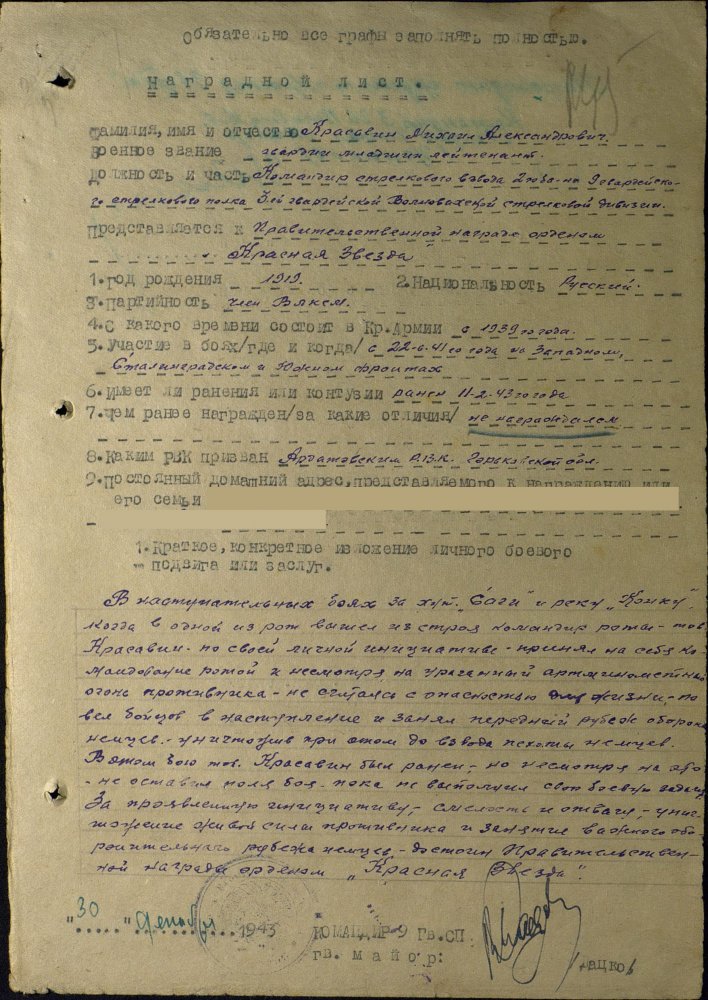 Обязательно все графы заполнять полностью.
НАГРАДНОЙ ЛИСТ.
Фамилия, имя и отчество Красавин Михаил Александрович.
Военное звание гвардии младший лейтенант.
Должность и часть Командир стрелкового взвода 2го б-на 9 гвардейско-
го стрелкового полка 3ей гвардейской Волновахской стрелковой дивизии.
Представляется к Правительственной награде орденом
Красная Звезда
1. год рождения 1919. 2. Национальность Русский.
3. Партийность член ВЛКСМ.
4. С какого времени состоит в Кр. Армии с 1939 го года.
5. Участие в боях/где и когда/ с 22-6-41 го года на Западном,
Сталинградском и Южном фронтах
6. Имеет ли ранения или контузии ранен 11-2-43 го года
7. Чем ранее награжден/за какие отличия/ не награждался
8. Каким РВК призван Ардатовским Р.В.К. Горьковской обл.
9. Постоянный домашний адрес, представляемого к награждению или
его семьи
1. Краткое, конкретное изложение личного боевого
подвига или заслуг.
В наступательных боях за хут. "Саги" и реку "Конку",
когда в одной из рот вышел из строя командир роты - тов.
Красавин - по своей личной инициативе - принял на себя ко-
мандование ротой и несмотря на ураганный артминометный
огонь противника - не считаясь с опасностью жизни, - по-
вел бойцов в наступление и занял передний рубеж обороны
немцев. - уничтожив при этом до взвода пехоты немцев.
В этом бою тов. Красавин был ранен, - но несмотря на это
- не оставил поля боя. пока не выполнил свою боевую задачу
За проявленную инициативу, - смелость и отвагу, - унич-
тожение живой силы противника и занятие важного обо-
ронительного рубежа немцев, - достоин Правительствен-
ной награды орденом "Красная Звезда".
"30" декабря 1943 КОМАНДИР 9 ГВ. СП
гв. майор:
/Мацков